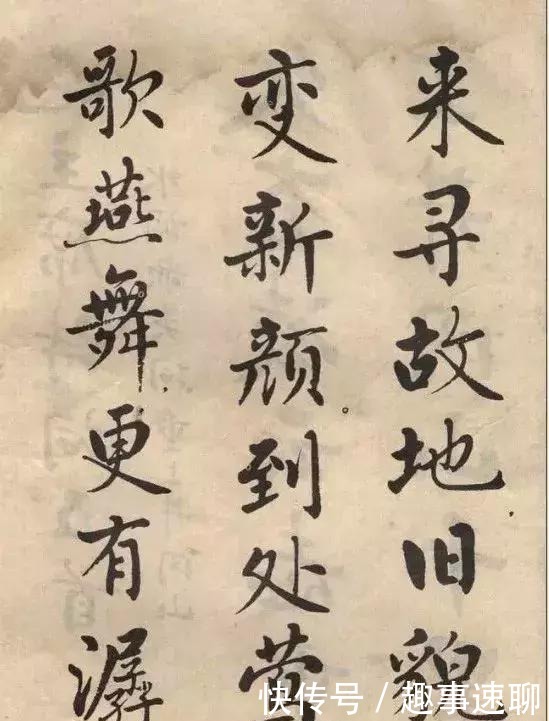 来寻故地,旧貌
变新颜。到处莺
歌燕舞,更有潺
快传号 / 趣事速聊